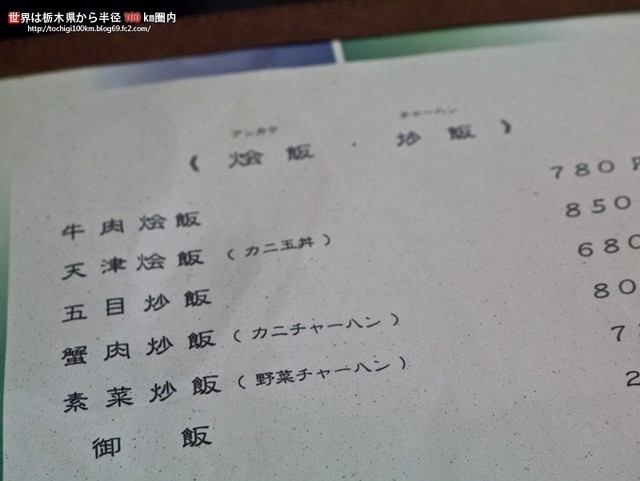 世界は栃木県から半径100km圏内
http://tochigi100km.blog69.fc2.com/
チャーハン
《 烩飯 ・ 炒飯 》
牛肉烩飯 780円
天津烩飯(カニ玉丼) 850
五目炒飯 680
蟹肉炒飯(カニチャーハン) 80
素菜炒飯(野菜チャーハン) 7
御飯 2